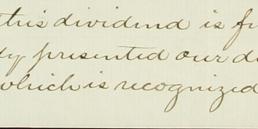 this dividend is
presented our
which is recognized